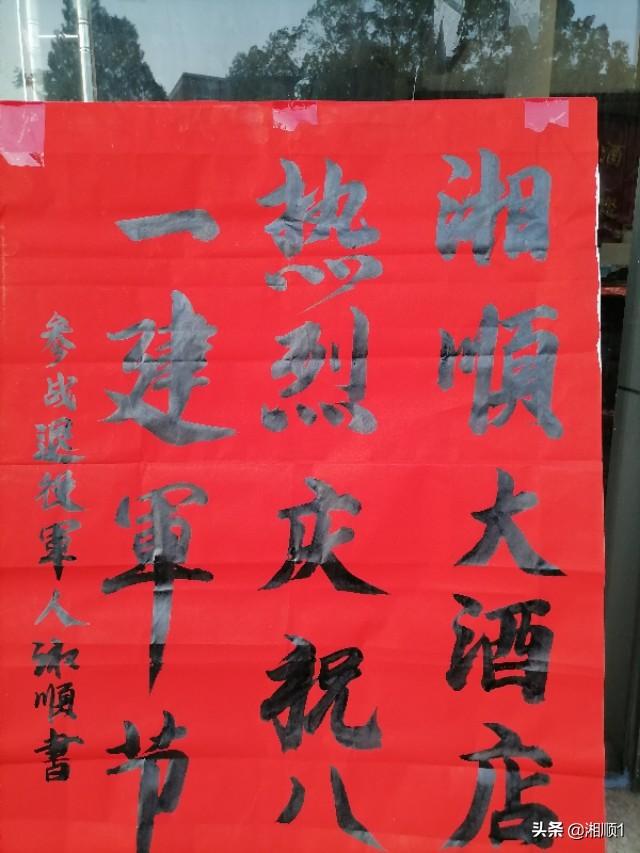 湘順大酒店
热烈庆祝八
一建軍节
参战退役軍人湘順書
酒
头条 @湘顺1